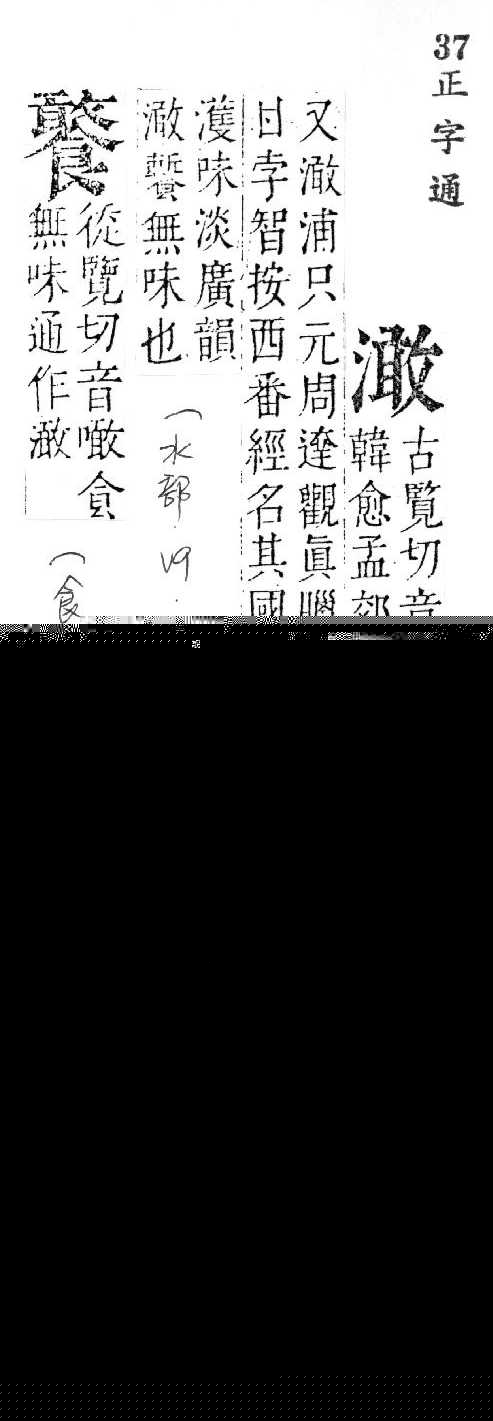 37
正字通
澉
古覽切音
韓愈孟郊
又澉浦只元周達觀眞臘
日孛智按西番經名其國
濩味淡廣韻
澉䭕無味也
（水部 19
饏
從覽切音噉食
無味通作澉
（食